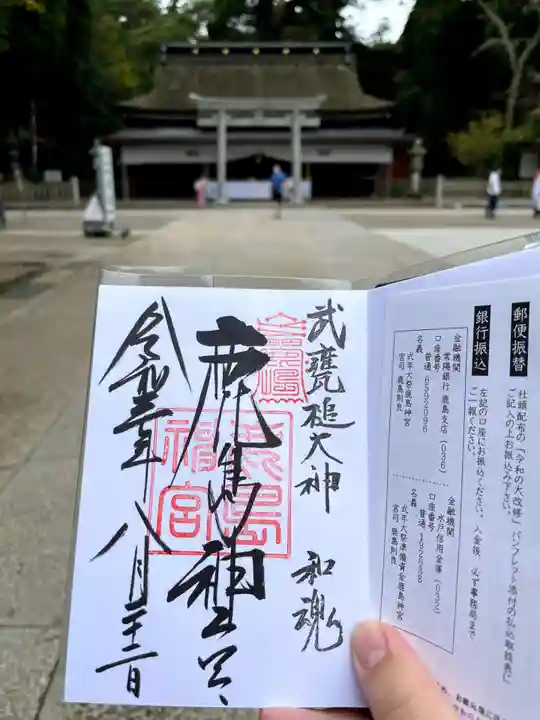 郵便振替
社頭配布の「令和の大改修」パンフレット添付の払込取扱票に
ご記入の上お振込み下さい。
銀行振込
左記の口座にお振込ください。入金後、必ず事務局まで
ご一報ください。
金融機関
常陽銀行 鹿島支店(036)
口座番号
普通 6592096
名義
式年大祭鹿島神宮
宮司 鹿島則良
金融機関
水戸信用金庫(032)
口座番号
普通 192838
名義
式年大祭準備資金鹿島神宮
宮司 鹿島則良
武甕槌大神 和魂
鹿島神宮
鹿島
神宮
令和三年八月二十二日